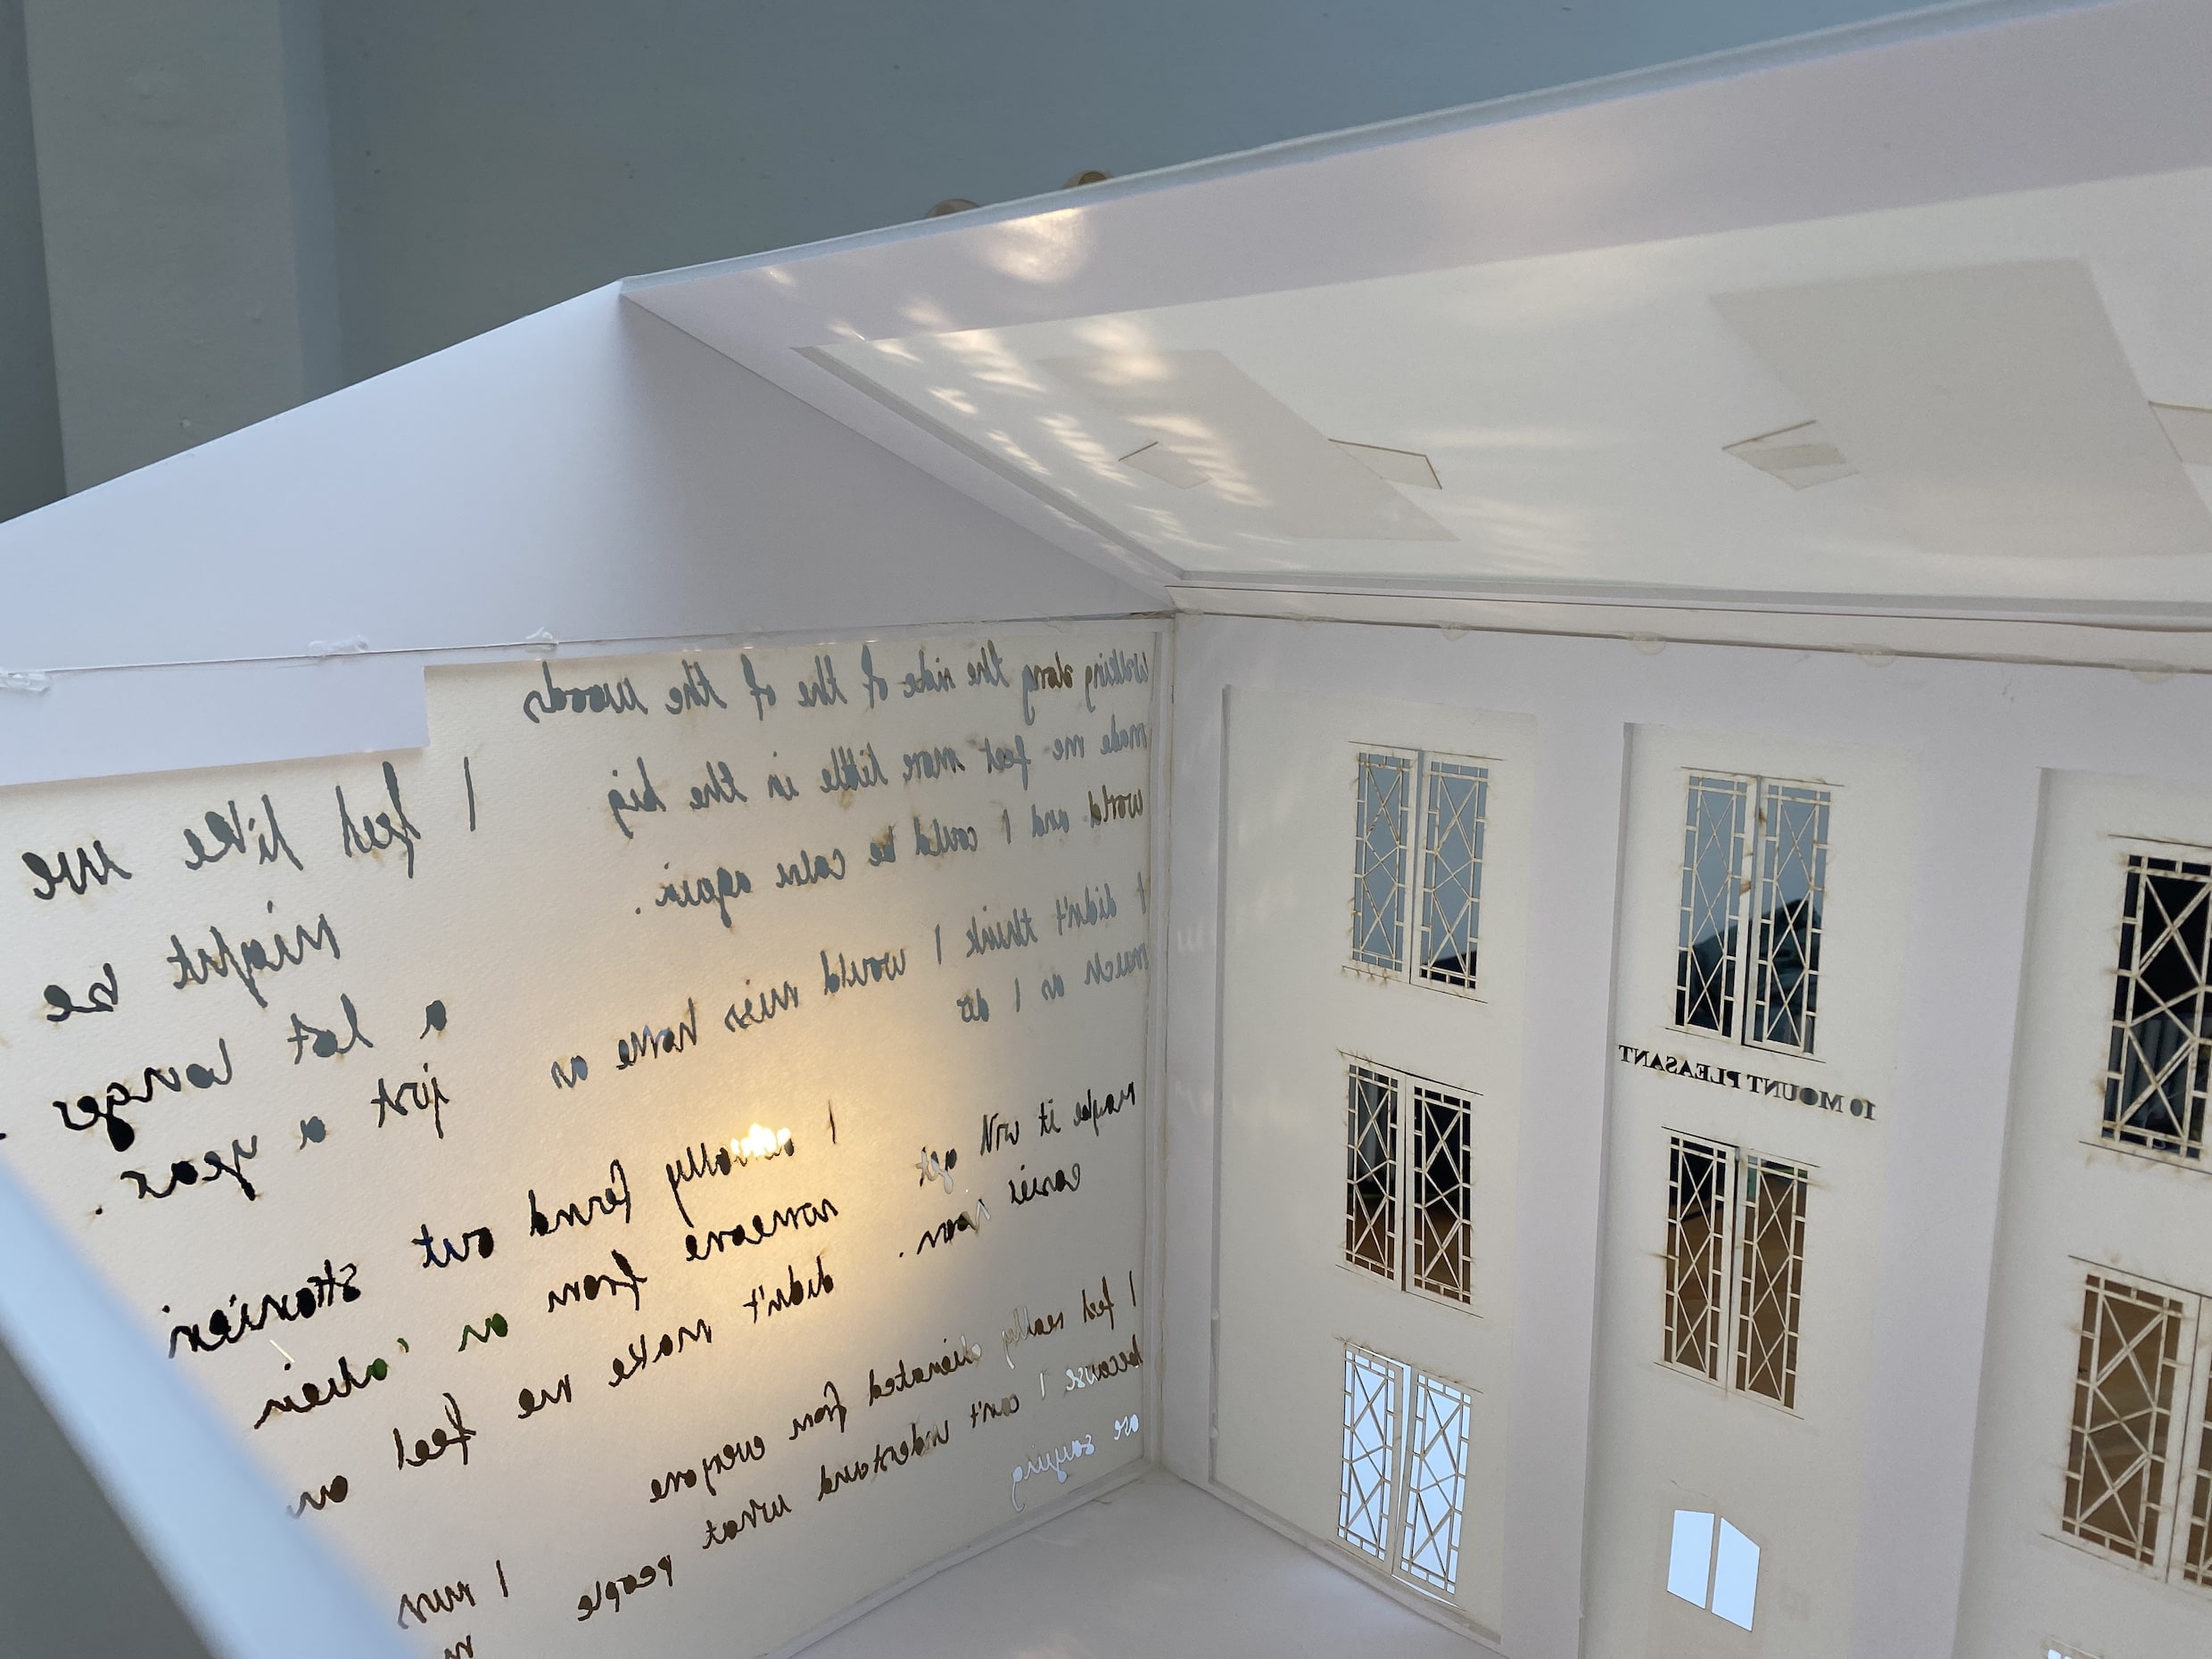 walking along the side of the of the woods
made me feel more little in the big
world and I could be calm again.
I didn't think I would miss home as
much as I do
maybe it will get
easier soon.
I feel really alienated from everyone
because I can't understand what people
are saying
I feel like we
might be
a lot longer
just a year.
I actually found out stranieri
someone from an 'alien
didn't make me feel an
I miss
10 MOUNT PLEASANT